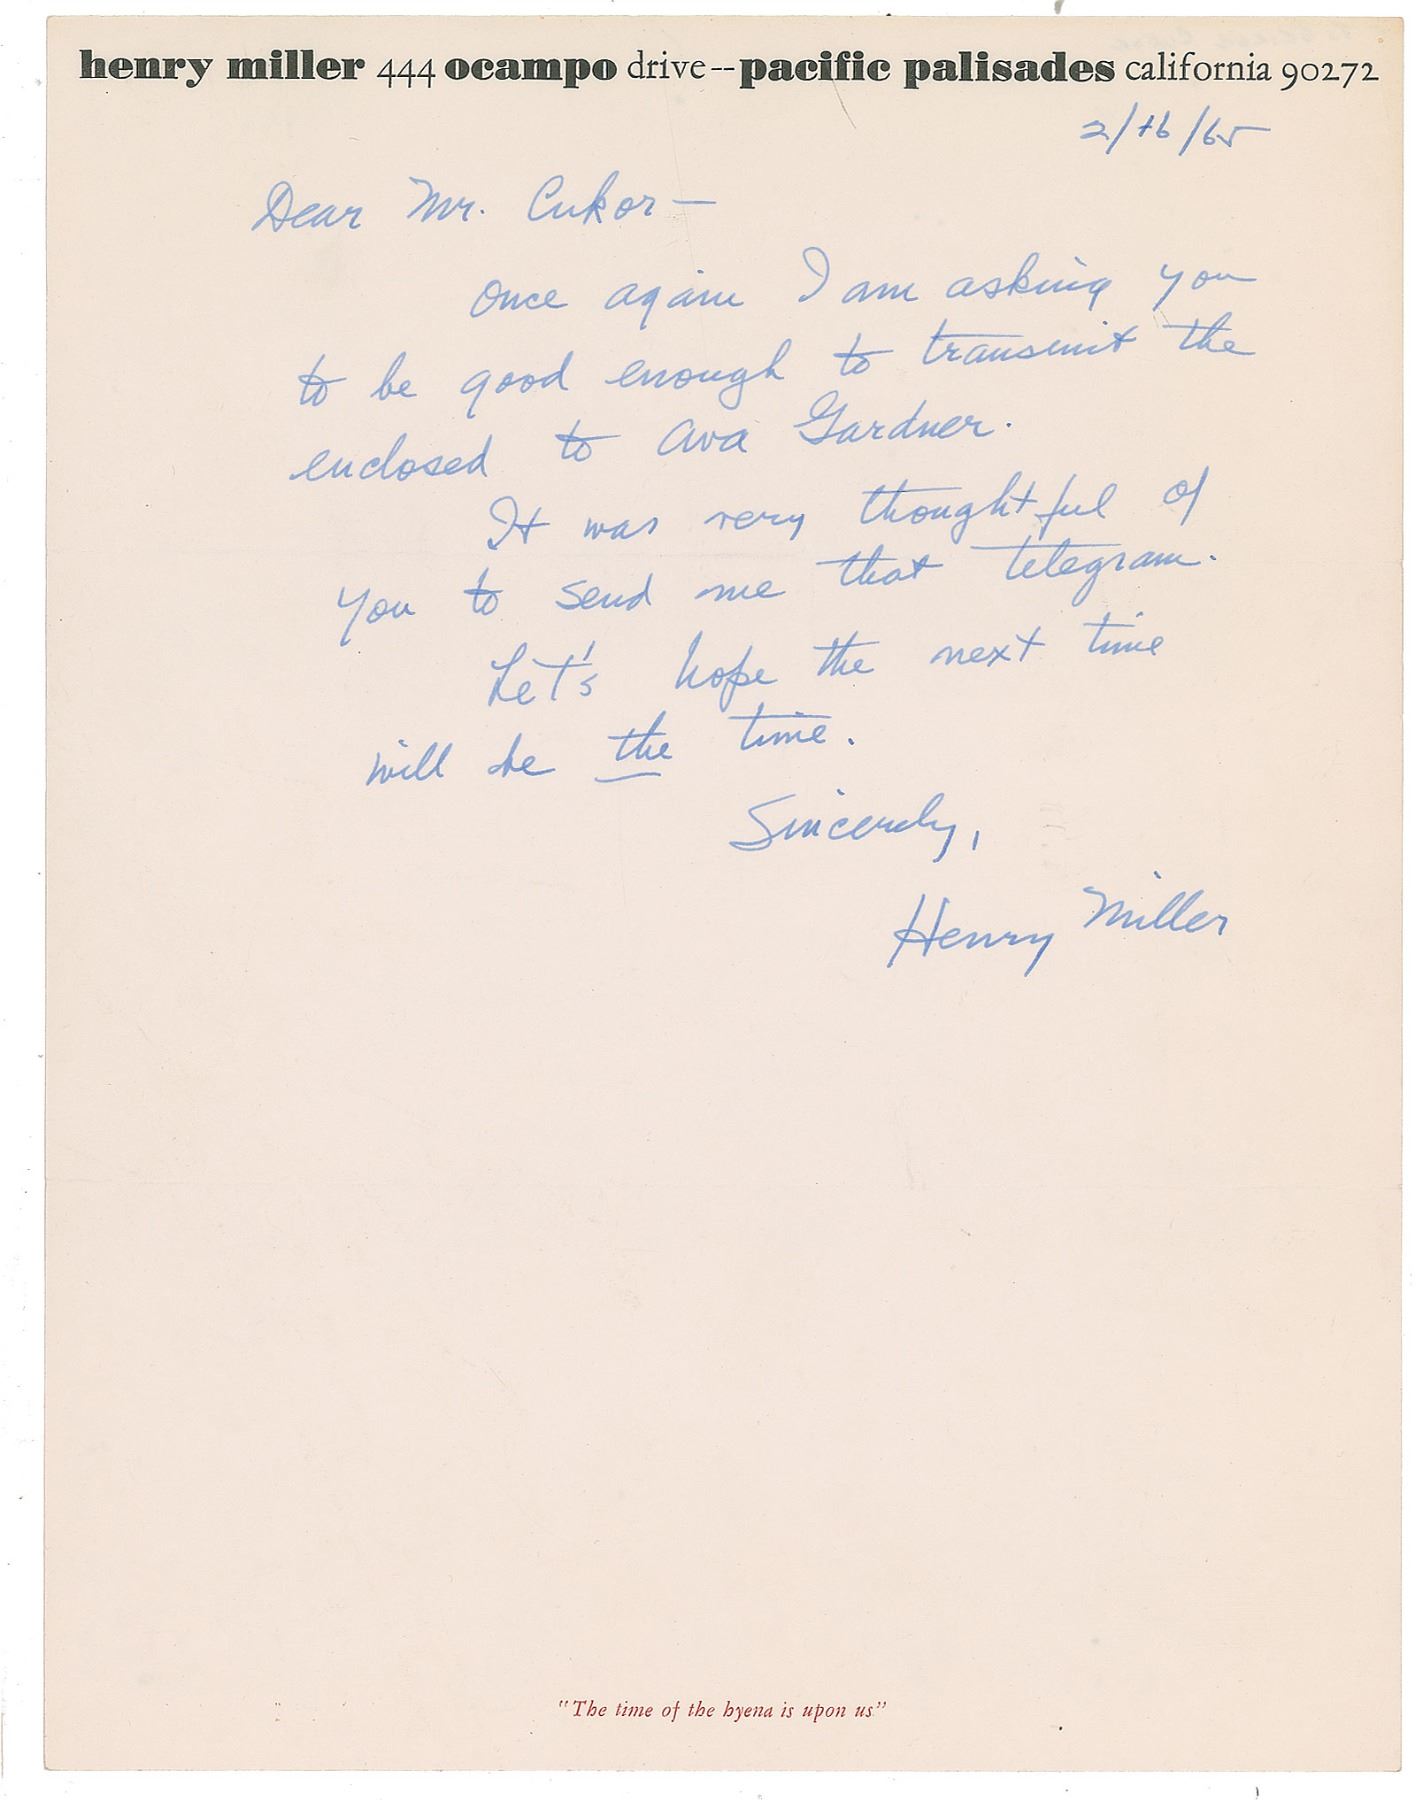 henry miller 444 ocampo drive--pacific palisades california 90272
2/16/65
Dear Mr. Cukor —
once again I am asking you
to be good enough to transmit the
enclosed to Ava Gardner.
It was very thoughtful of
you to send me that telegram.
Let's hope the next time
will be the time.
Sincerely,
Henry Miller
"The time of the hyena is upon us"